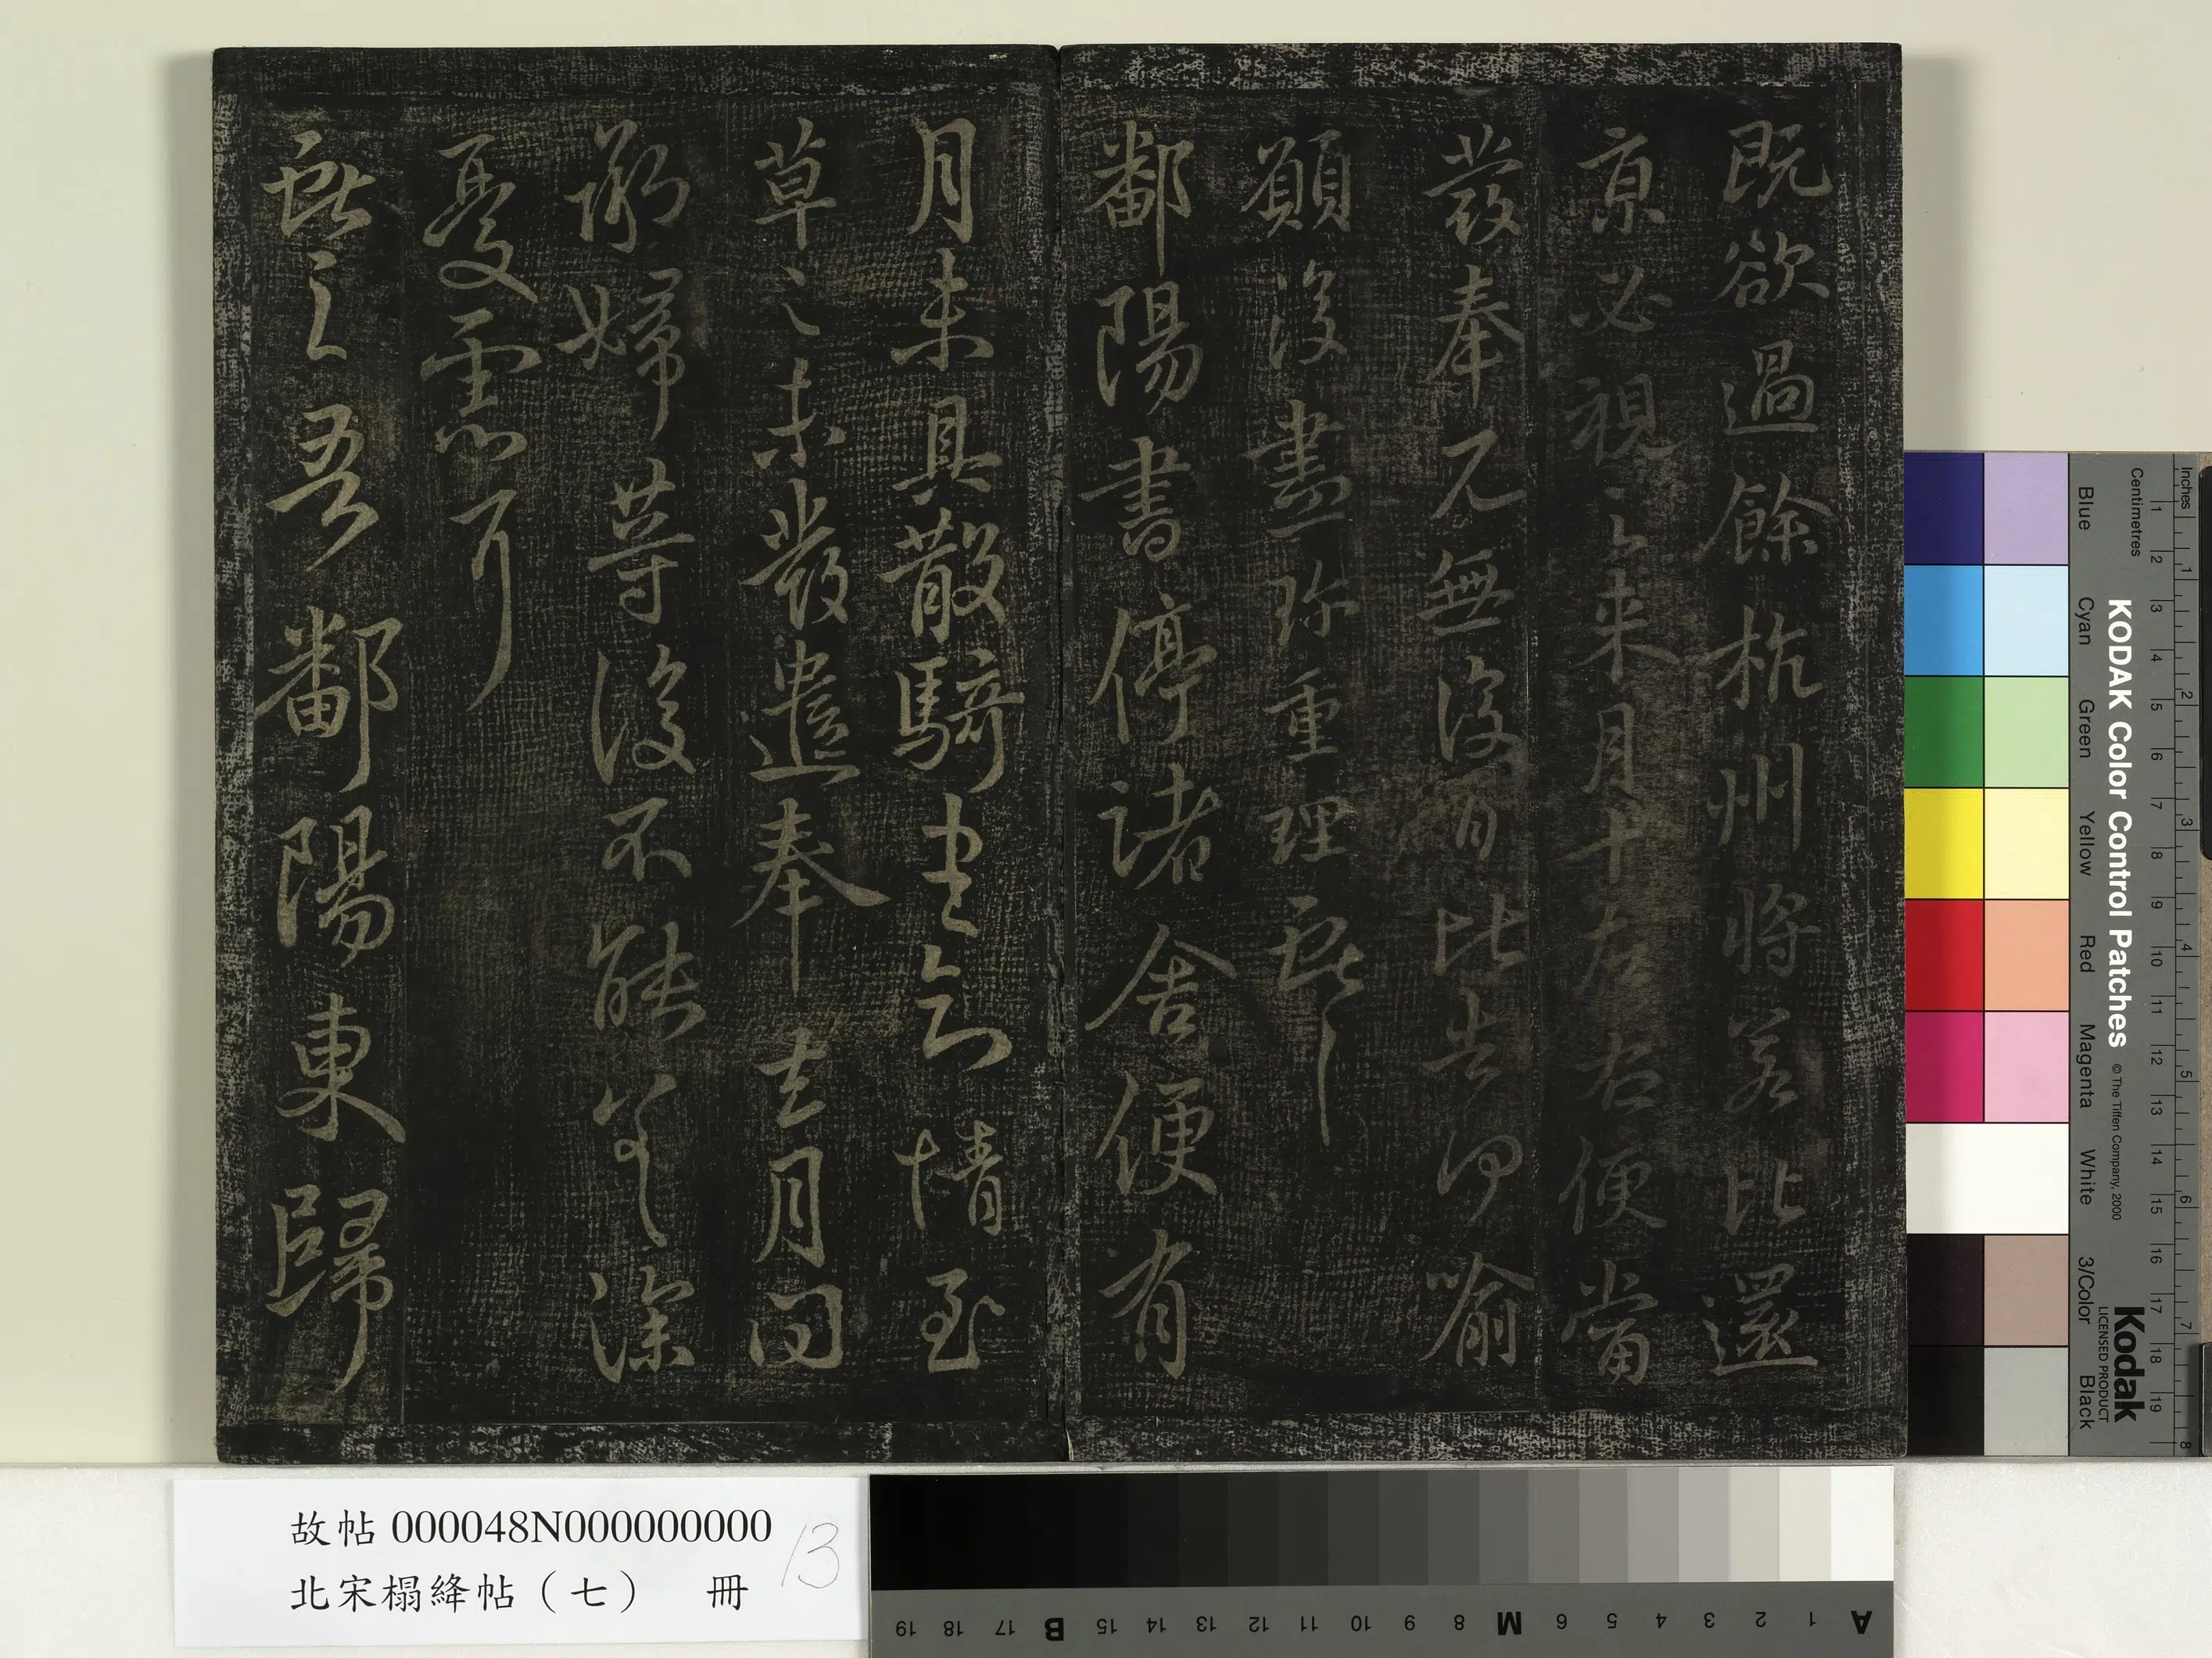 既欲過餘杭州將若比還
京必視之來月十左右便當
發奉見無復日比告何喻
願復盡珍重理獻之
鄱陽書停諸舍便有
月未具散騎書知情至
草之未發遣奉去月問
婦等復不能深
憂懸耳
獻之吾鄱陽東歸
故帖000048N000000000
北宋榻絳帖（七） 冊
13
Inches
Centimetres
KODAK Color Control Patches © The Tiffen Company, 2000
Kodak
LICENSED PRODUCT
Blue Cyan Green Yellow Red Magenta White 3/Color Black
1 2 3 4 5 6 7 8
1 2 3 4 5 6 7 8 9 10 11 12 13 14 15 16 17 18 19
A 1 2 3 4 5 6 M 8 9 10 11 12 13 14 15 B 17 18 19